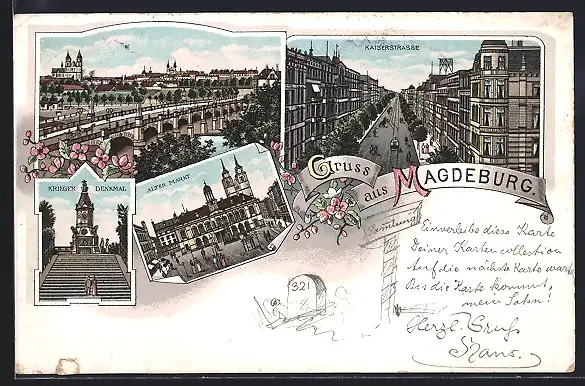 KAISERSTRASSE
KRIEGER DENKMAL
ALTER MARKT
Gruss
aus MAGDEBURG.
Einverleibe diese Karte
Deiner Karten collection
Auf die nächste Karte warte
Bis die Karte kommt,
mein Sohn!
321
Herzl. Gruß
Hans.